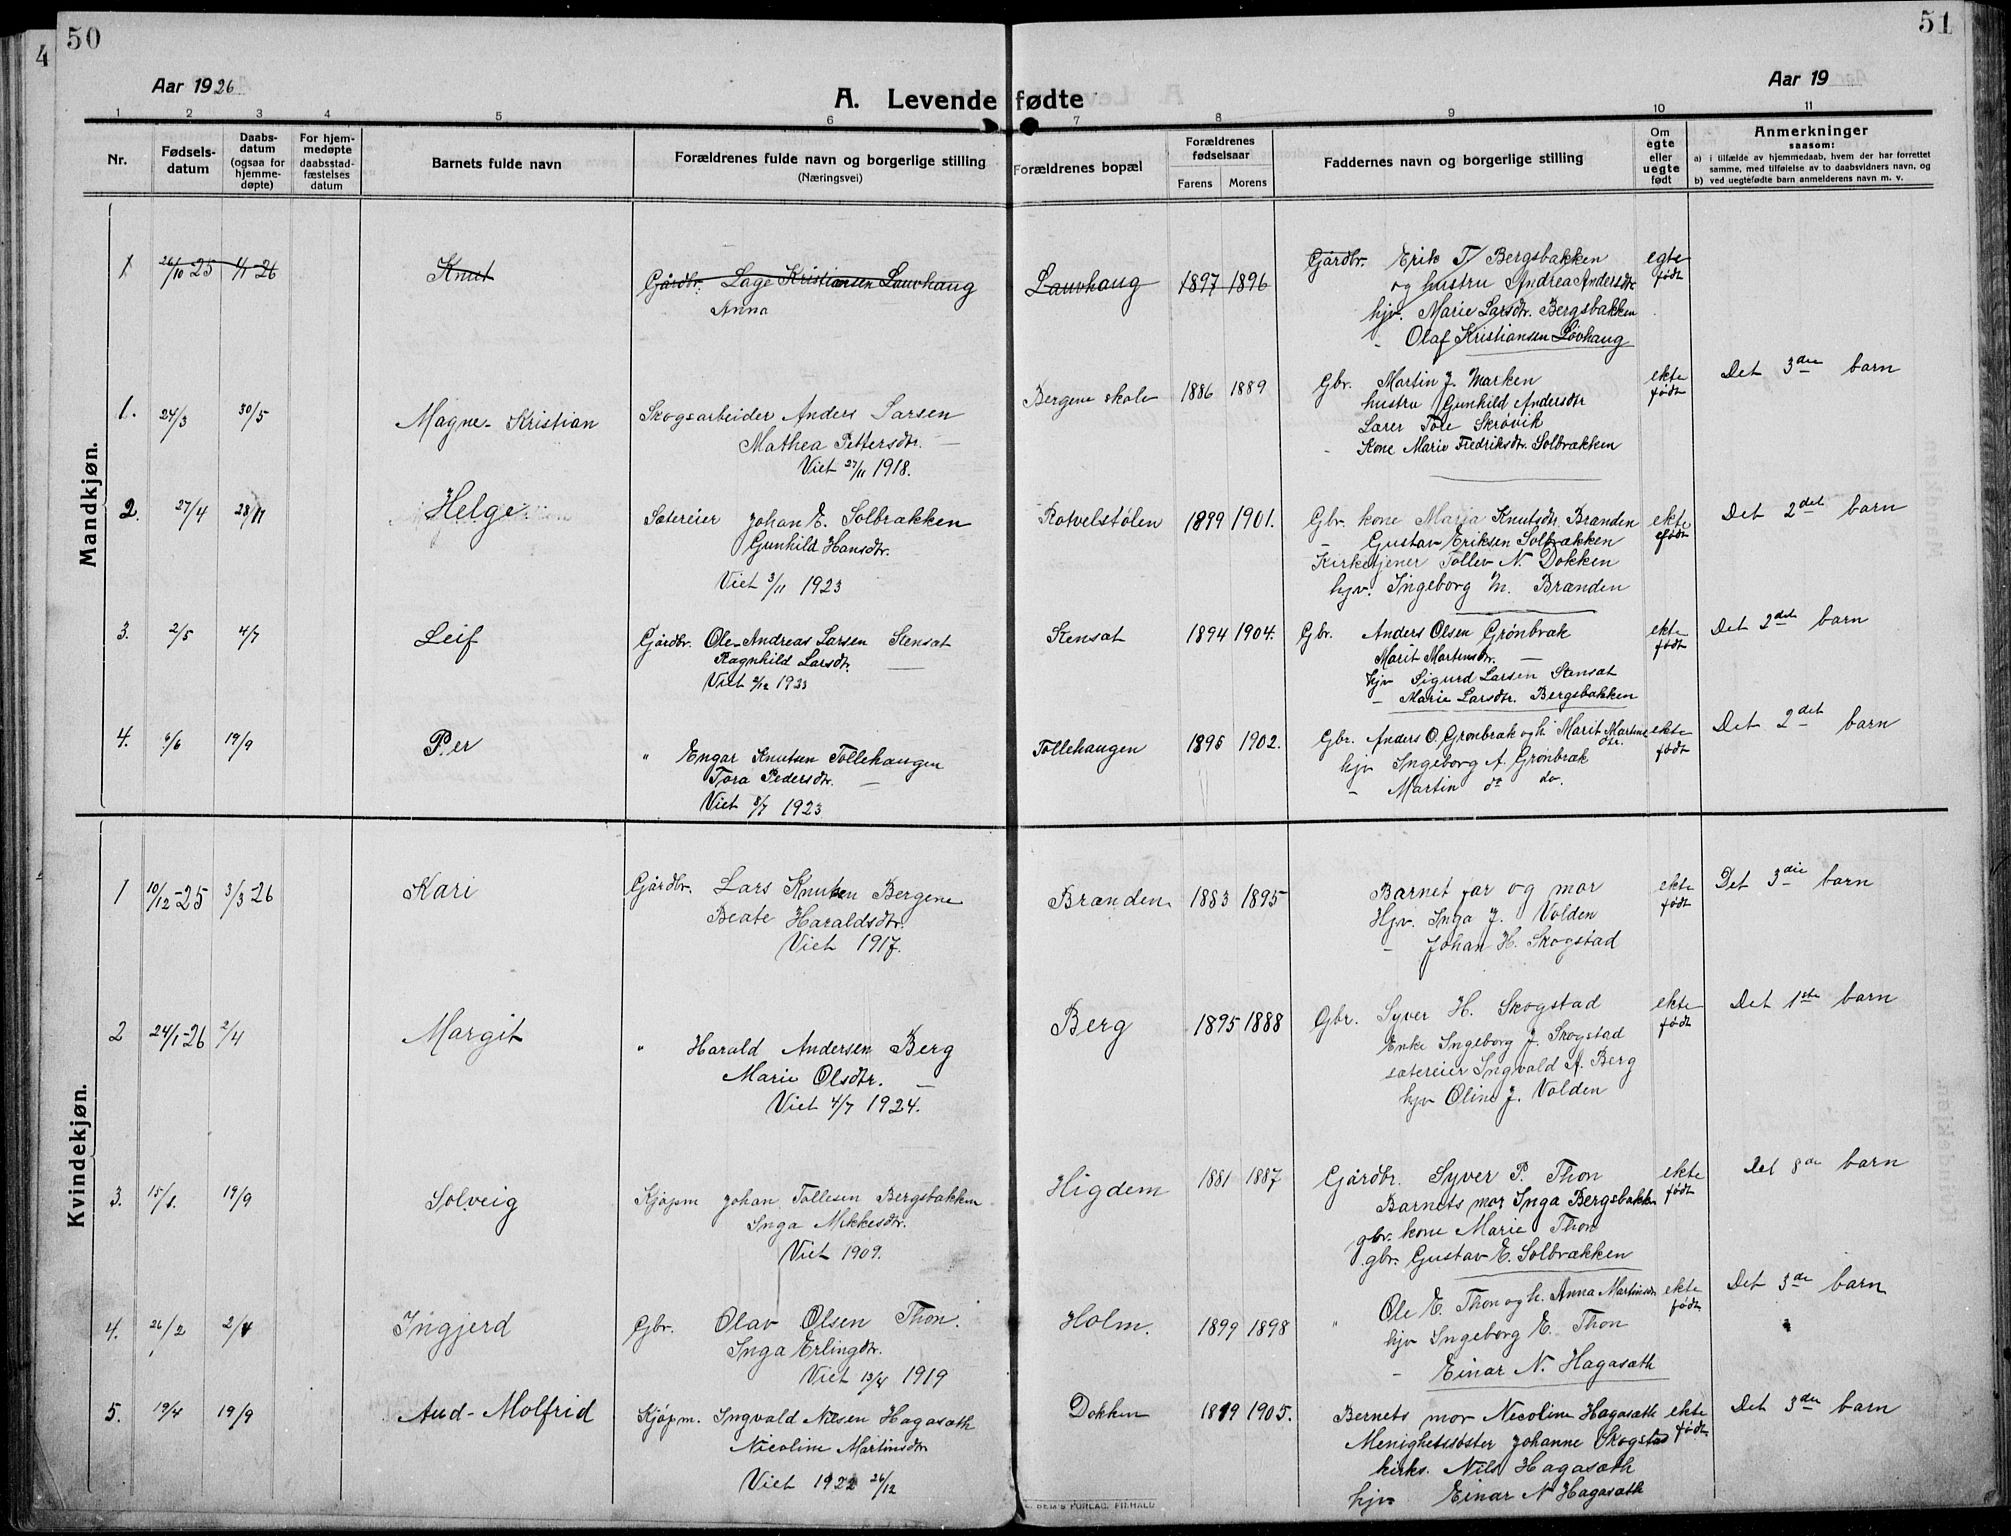 50
51
4
Aar 1926
A. Levende fødte
Aar 19
1 2 3 4 5 6 7 8 9 10 11
Nr.
Fødsels-
datum
Daabs-
datum
(ogsaa for
hjemme-
døpte)
For hjem-
medøpte
daabsstad-
fæstelses
datum
Barnets fulde navn
Forældrenes fulde navn og borgerlige stilling
(Næringsvei)
Forældrenes bopæl
Forældrenes
fødselsaar
Farens
Morens
Faddernes navn og borgerlige stilling
Om
egte
eller
uegte
født
Anmerkninger
saasom:
a) i tilfælde av hjemmedaab, hvem der har forrettet
samme, med tilføielse av to daabsvidners navn, og
b) ved uegtefødte barn anmelderens navn m. v.
Mandkjøn.
1 26/10 25 1/1 26 Knut Gårdbr. Lage Kristiansen Lauvhaug Lauvhaug 1897 1896 Gårdbr. Erik T. Bergsbakken egte
Anna og hustru Andrea Andersdtr født
hjv. Marie Larsdtr. Bergsbakken
- Olaf Kristiansen Lövhaug
1. 24/3 30/5 Magne-Kristian Skogsarbeider Anders Larsen Bergene skole 1886 1889 Gbr. Martin J. Marken ekte født Det 3die barn
Mathea Pettersdtr. hustru Gunhild Andersdtr
Viet 27/11 1918. Lærer Tore Skrøvik
- Kone Marie Fredriksdtr. Solbrækken
2. 27/4 28/11 Helge Sætereier Johan E. Solbrækken Rotvelstølen 1899 1901. Gbr. kone Marja Knutsdtr. Brænden ekte født Det 2det barn
Gunhild Hansdtr. - Gustav Eriksen Solbrækken
Viet 3/11 1923 Kirketjener Tollev N. Dokken
hjv. Ingeborg M. Brænden
3. 2/5 4/7 Leif Gårdbr. Ole-Andreas Larsen Stensæt Stensæt 1894 1904. Gbr. Anders Olsen Grønbræk ekte født Det 2det barn
Ragnhild Larsdtr. Marit Martinsdtr.
Viet 2/12 1923 hjv Sigurd Larsen Stensæt
- Marie Larsdtr. Bergsbakken
4. 6/6 19/9 Per " Engar Knutsen Tollehaugen Tollehaugen 1895 1902. Gbr. Anders O. Grønbræk og h. Marit Martinsdtr. ekte født Det 2det barn
Tora Pedersdtr. hjv Ingeborg A. Grønbræk
Viet 8/7 1923 - Martin do do.
Kvindekjøn.
1 10/12-25 3/3-26 Kari Gårdbr. Lars Knutsen Bergene Brænden 1883 1895 Barnet far og mor ekte født Det 3die barn
Beate Haraldsdtr. Hjv. Inga J. Volden
Viet 1917. - Johan H. Skogstad
2 24/1-26 2/4 Margit " Harald Andersen Berg Berg 1895 1888 Gbr. Syver H. Skogstad ekte født Det 1ste barn
Marie Olsdtr. Enke Ingeborg J. Skogstad
Viet 4/7 1924. sætereier Ingvald A. Berg
hjv Oline J. Volden
3. 19/9 Solveig Kjøpm Johan Tollesen Bergsbakken Higdem 1881 1887 Gårdbr. Syver P. Thon ekte født Det 8de barn
Inga Mikkesdtr. Barnets mor Inga Bergsbakken
Viet 1909. gbr. kone Marie Thon
gbr. Gustav E. Solbrækken
4. 26/2 2/4 Ingjerd Gbr. Olav Olsen Thon. Holm. 1899 1898 " Ole E. Thon og h. Anna Martinsdtr ekte født Det 3de barn
Inga Erlingdtr. hjv Ingeborg E. Thon
Viet 13/4 1919 - Einar N. Hagasæth
5. 19/4 19/9 Aud-Molfrid Kjøpm. Ingvald Nilsen Hagasæth Dokken 1899 1905. Bernets mor Nicoline Hagasæth ekte født Det 3de barn
Nicoline Martinsdtr Menighetssøster Johanne Skogstad
Viet 1922 26/12 kirks. Nils Hagasæth
hjv Einar N Hagasæth